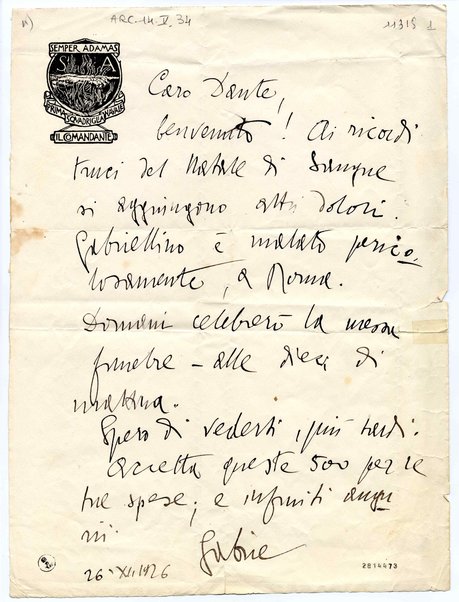 a) ARC. 14. V. 34 11318 1
SEMPER ADAMAS
S A
PRIMA SQUADRIGLIA NAVALE
IL COMANDANTE
Caro Dante,
benvenuto! Ai ricordi
truci del Natale di Sangue
si aggiungono altri dolori.
Gabriellino è malato perico-
losamente, a Roma.
Domani celebrerò la messa
funebre – alle dieci di
mattina.
Spero di vederti, più tardi.
Accetta queste 500 per le
tue spese; e infiniti augu
rii.
Gabrie
26. XII. 1926
2814473